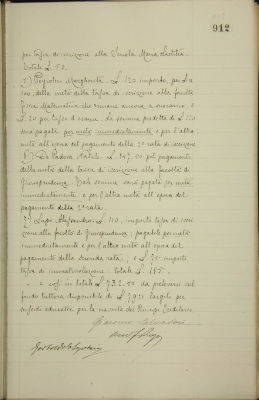 912
per tassa di iscrizione alla Scuola Maria Laetitia.
Totale £ 50.
5) Margherita £ 120 importo, per la
della metà della tassa di iscrizione alla facoltà
Fisica Matematica che rimane ancora a
£ 20 per tassa d'esame. La somma predetta di £ 110
sarà pagata per metà immediatamente e per l'altra
metà all'epoca del pagamento della 2ª rata di iscrizione.
6) De Padova Natale. £ 147.50 pel pagamento
della metà della tassa di iscrizione alla facoltà di
Giurisprudenza. Tale somma sarà pagata per metà
immediatamente e per l'altra metà all'epoca del
pagamento della 2ª rata.
7) Lupo Alessandro £ 110, importo tassa di iscri-
zione alla facoltà di Giurisprudenza, pagabile per metà
immediatamente e per l'altra metà all'epoca del
pagamento della seconda rata, e £ 75 importo
tassa di immatricolazione. Totale £ 185.
e così in totale £ 732.50 da prelevarsi sul
fondo tuttora disponibile di £ elargite per
sussidi educativi per la nascita del Principe Ereditario.
Giacomo Salvadori